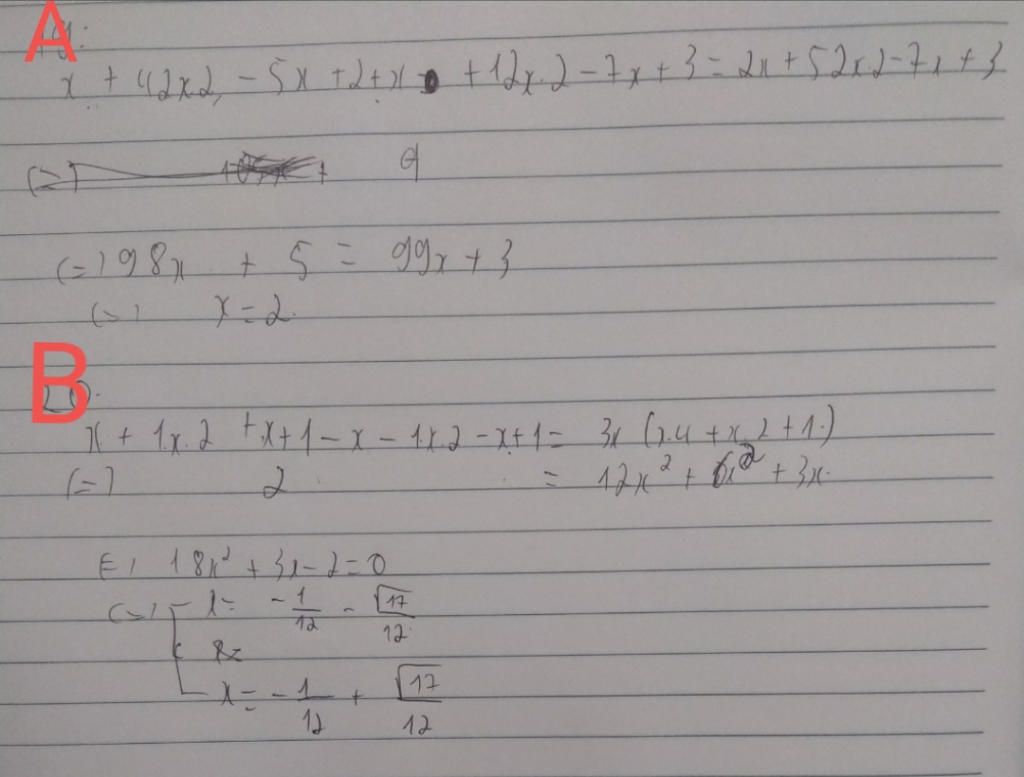 A
x + 42x2, - 5x + 2 + x + 12x.2 - 7x + 3 = 2x + 52x2 - 7x + 3
(=)
9
(=) 98x + 5 = 99x + 3
(=) x = 2.
B
x + 1x.2 + x + 1 - x - 1x.2 - x + 1 = 3x (x.4 + x.2 + 1.)
(=) 2 = 12x² + 6x² + 3x.
(=) 18x² + 3x - 2 = 0
(=) x = - 1/12 - √17/12
x =
x = - 1/12 + √17/12